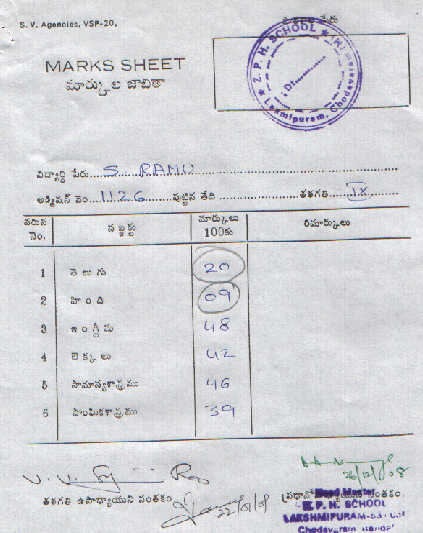 S. V. Agencies, VSP-20,
MARKS SHEET
మార్కుల జాబితా
Z. P. H. SCHOOL
Laxmipuram, Chodavaram
విద్యార్థి పేరు S. RAMU
అడ్మిషన్ నెం. 1126 పుట్టిన తేది తరగతి IX
వరుస నెం. సబ్జక్టు మార్కులు 100కు రిమార్కులు
1 తెలుగు 20
2 హింది 09
3 ఇంగ్లీషు 48
4 లెక్కలు 42
5 సామాన్యశాస్త్రము 46
6 సాంఘికశాస్త్రము 39
తరగతి ఉపాధ్యాయుని సంతకం
Head Master
Z. P. H. SCHOOL
LAKSHMIPURAM